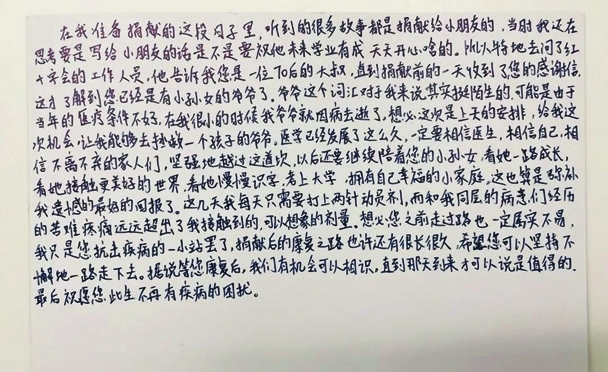 在我准备捐献的这段日子里，听到的很多故事都是捐献给小朋友的，当时我还在
思考要是写给小朋友的话是不是要祝他未来学业有成天天开心啥的。所以特地去问了红
十字会的工作人员，他告诉我您是一位70后的大叔，直到捐献前的一天收到了您的感谢信，
这才了解到您已经是有小孙女的爷爷了。爷爷这个词汇对于我来说其实挺陌生的，可能是由于
当年的医疗条件不好，在我很小的时候我爷爷就因病去逝了。想必这次是上天的安排，给我这
次机会，让我能够去拯救一个孩子的爷爷。医学已经发展了这么久，一定要相信医生，相信自己，相
信不离不弃的家人们，坚强地越过这道坎，以后还要继续陪着您的小孙女，看她一路成长，
看她接触更美好的世界，看她慢慢识字，考上大学，拥有自己幸福的小家庭，这也算是弥补
我遗憾的最好的回报了。这几天我每天只需要打上两针动员剂，而和我同层的病患们经历
的苦难疼痛远远超出了我接触到的，可以想象的剂量。想必您之前走过路也一定属实不易，
我只是您抗击疾病的一小站罢了，捐献后的康复之路也许还有很长很久，希望您可以坚持不
懈地一路走下去。据说等您康复后，我们有机会可以相识，直到那天到来才可以说是值得的。
最后祝愿您此生不再有疾病的困扰。